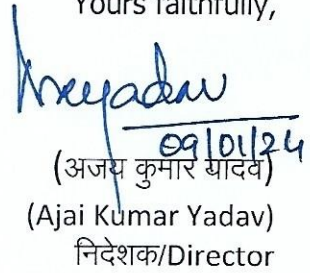 Yours faithfully,
09/01/24
(अजय कुमार यादव)
(Ajai Kumar Yadav)
निदेशक/Director